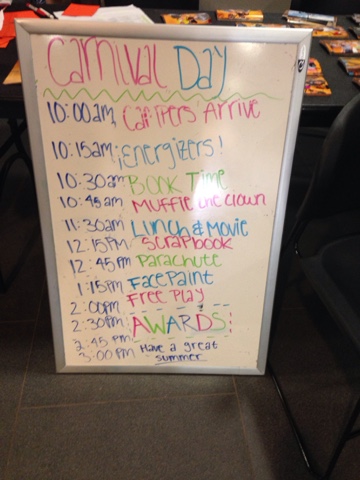 Carnival Day
10:00am, Campers Arrive
10:15am: ¡Energizers!
10:30am Book Time
10:45am Muffie the Clown
11:30am Lunch & Movie
12:15PM Scrapbook
12:45PM Parachute
1:15PM Face Paint
2:00PM Free Play
2:30PM AWARDS!
2:45 PM: Have a great
3:00 PM summer